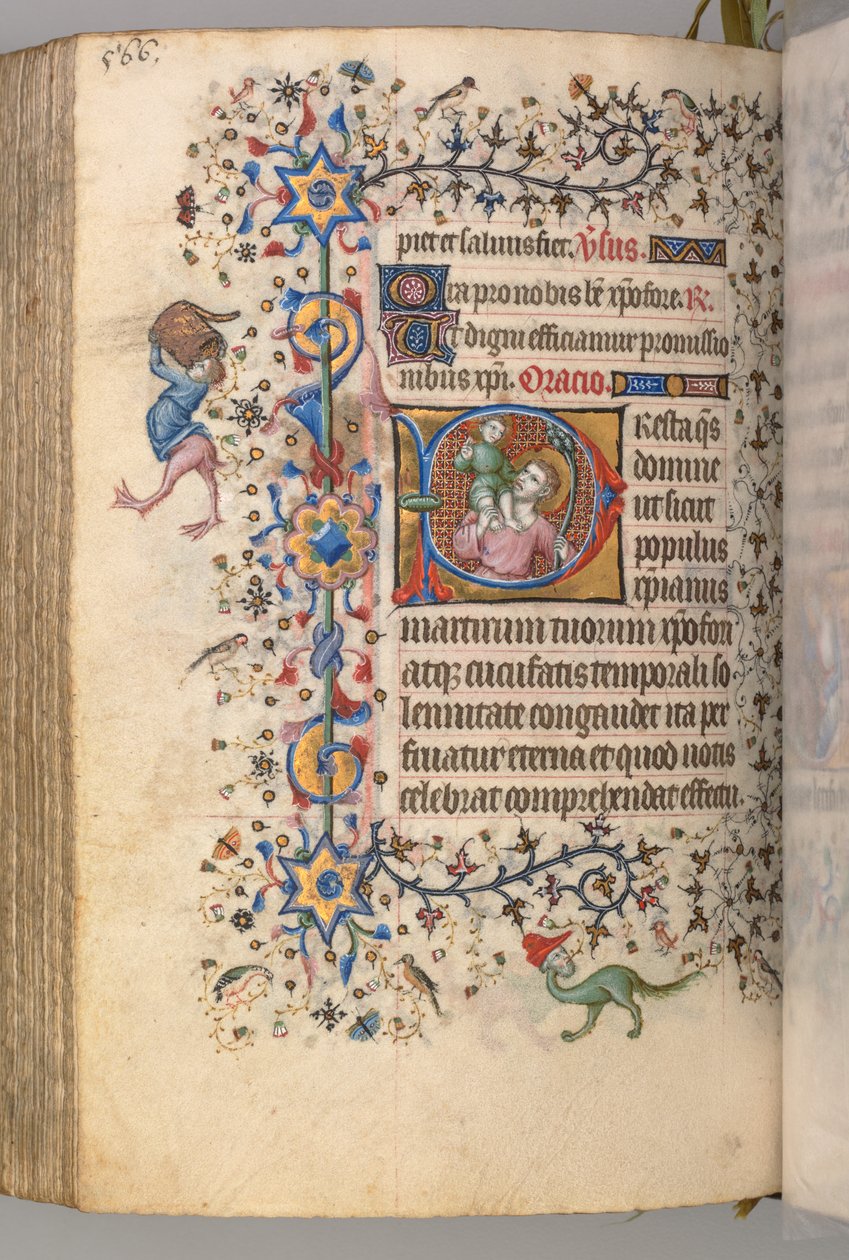 566.
piet et salvus fiet. Vsus.
Ora pro nobis be xpofore. R.
Ut digni efficiamur promissio
nibus xpi. Oracio.
Presta qs
domine
ut sicut
populus
xpianus
martirum tuorum xpofori
atq cucufatis temporali so
lennitate congaudet ita per
fruatur eterna et quod votis
celebrat comprehendat effectu.